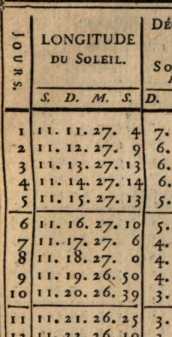 DÉ
JOURS.
LONGITUDE
DU SOLEIL.
S. D. M. S. D.
1 11. 11. 27. 4 7.
2 11. 12. 27. 9 6.
3 11. 13. 27. 13 6.
4 11. 14. 27. 14 6.
5 11. 15. 27. 13 5.
6 11. 16. 27. 10 5.
7 11. 17. 27. 6 4.
8 11. 18. 27. 0 4.
9 11. 19. 26. 50 4.
10 11. 20. 26. 39 3.
11 11. 21. 26. 25 3.